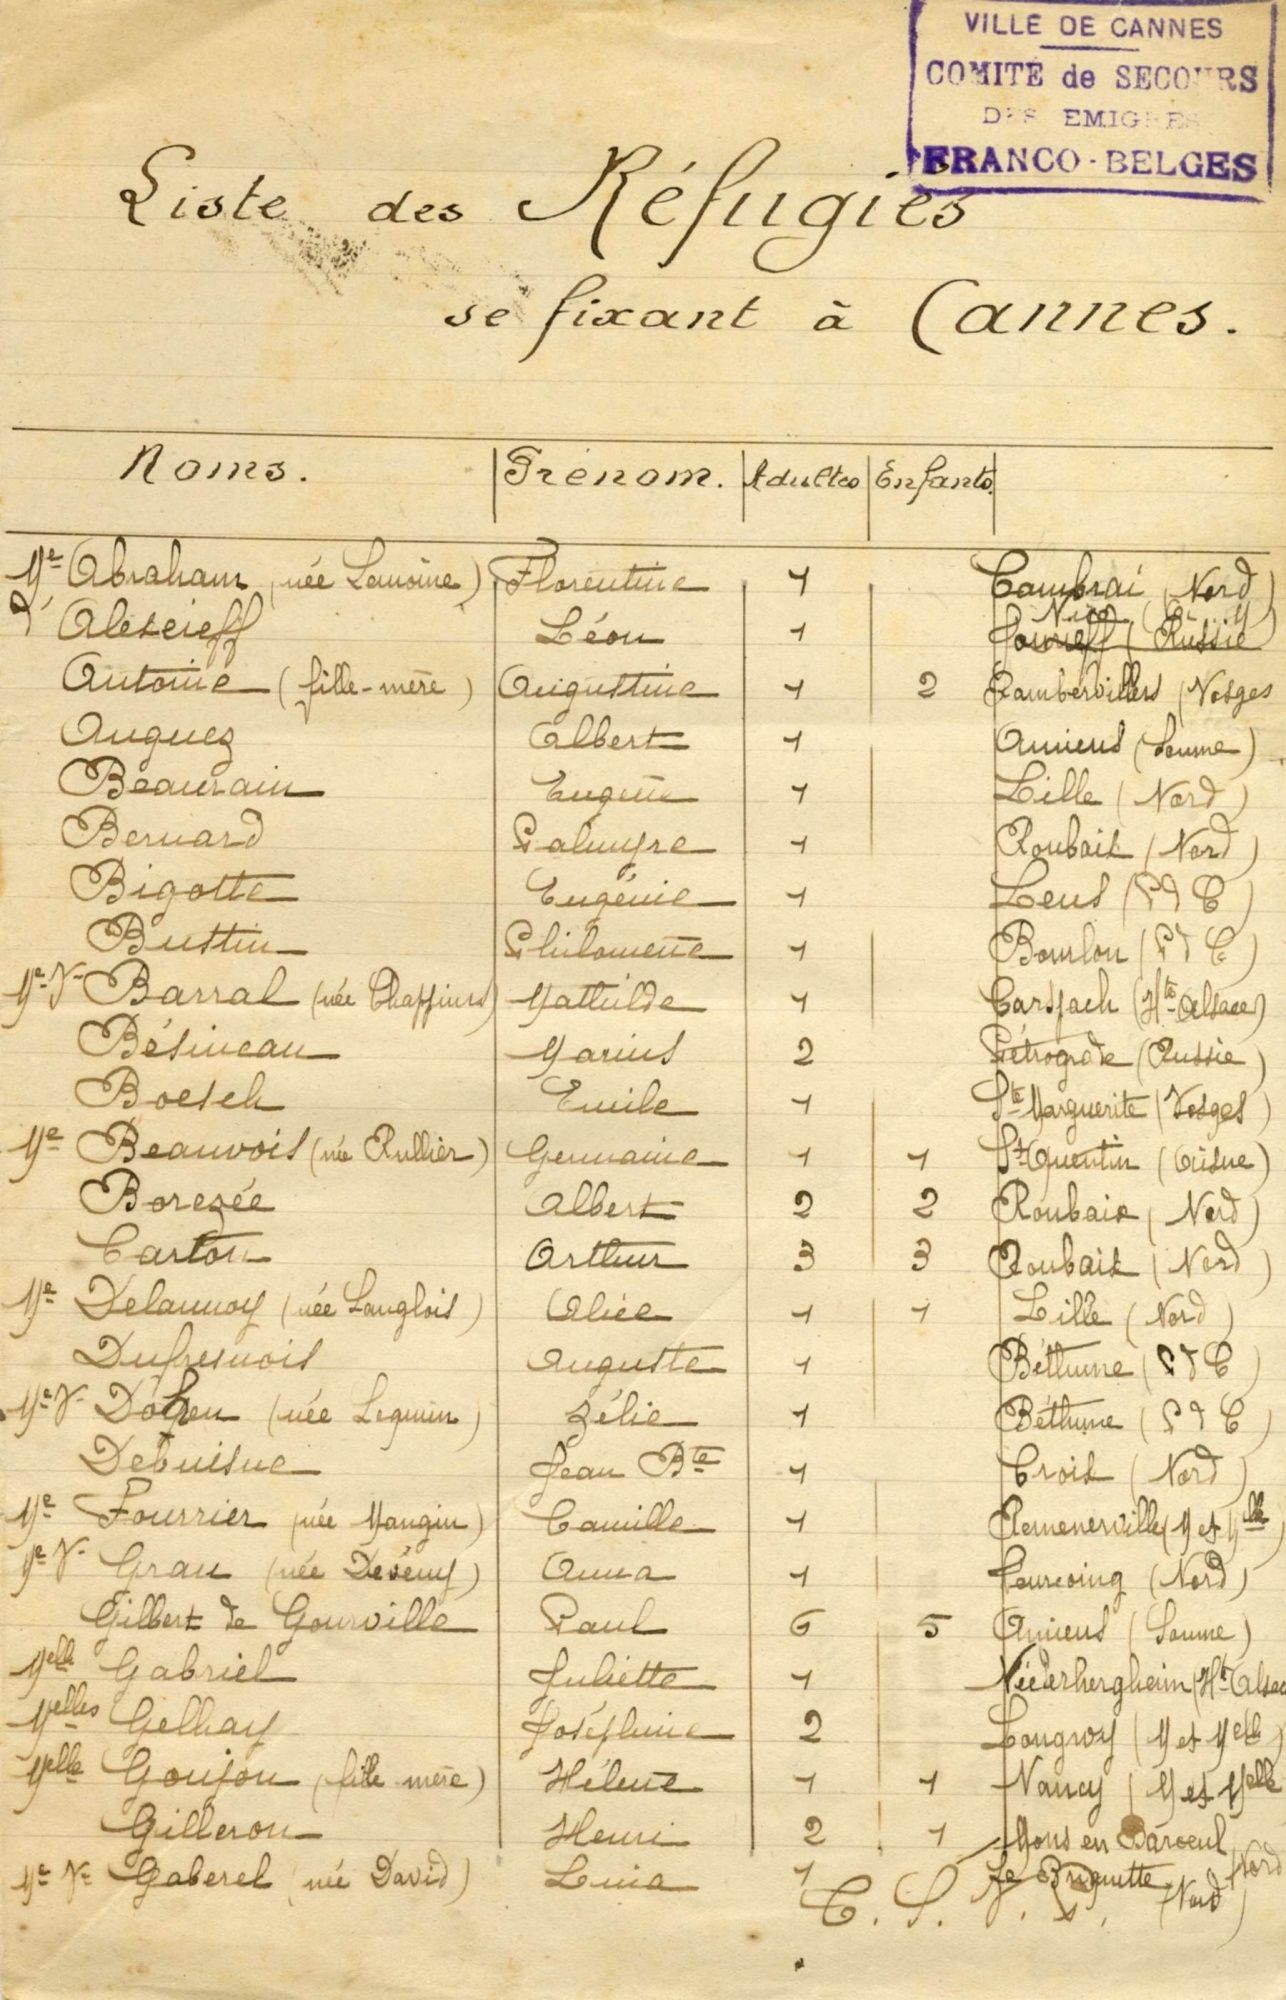 VILLE DE CANNES
COMITÉ de SECOURS
DES EMIGRES
FRANCO-BELGES
Liste des Réfugiés
se fixant à Cannes.
Noms. Prénom. Adultes Enfants.
Me Abraham (née Lemoine) Florentine 1 Cambrai (Nord)
d' Alexeieff Léon 1 Nice (Russie
Antoine (fille-mère) Augustine 1 2 Rambervillers (Vosges
Auguez Albert 1 Amiens (Somme)
Beaurain Eugène 1 Lille (Nord)
Bernard Palmyre 1 Roubaix (Nord)
Bigotte Eugénie 1 Lens (P d C)
Bustin Philomène 1 Bourlon (P d C)
Me Ve Barral (née Chaffiurs) Mathilde 1 Carspach (Hte Alsace)
Bésineau Marius 2 Pétrograde (Russie)
Boesch Emile 1 Ste Marguerite (Vosges)
Me Beauvois (née Rullier) Germaine 1 1 St Quentin (Aisne)
Borezée Albert 2 2 Roubaix (Nord)
Carton Arthur 3 3 Roubaix (Nord)
Me Delannoy (née Langlois) Alice 1 1 Lille (Nord)
Dufresnois Auguste 1 Béthune (P d C)
Me Ve (née Lequin) Zélie 1 Béthune (P d C)
Debuisne Jean Bte 1 Croix (Nord)
Me Fourrier (née Mangin) Camille 1 Remenerville (M et Mlle)
Me Ve Grau (née Devémy) Anna 1 Tourcoing (Nord)
Gilbert de Gourville Paul 6 5 Amiens (Somme)
Melle Gabriel Juliette 1 Niederhergheim (Hte Alsac
Melles Gelhay Joséphine 2 Longwy (M et Melle)
Melle Goujon (fille mère) Hélène 1 1 Nancy (M et Melle
Gilleron Henri 2 1 Mons en Baroeul (Nord
Me Ve Gaberel (née David) Lina 1 La Briquette (Nord)